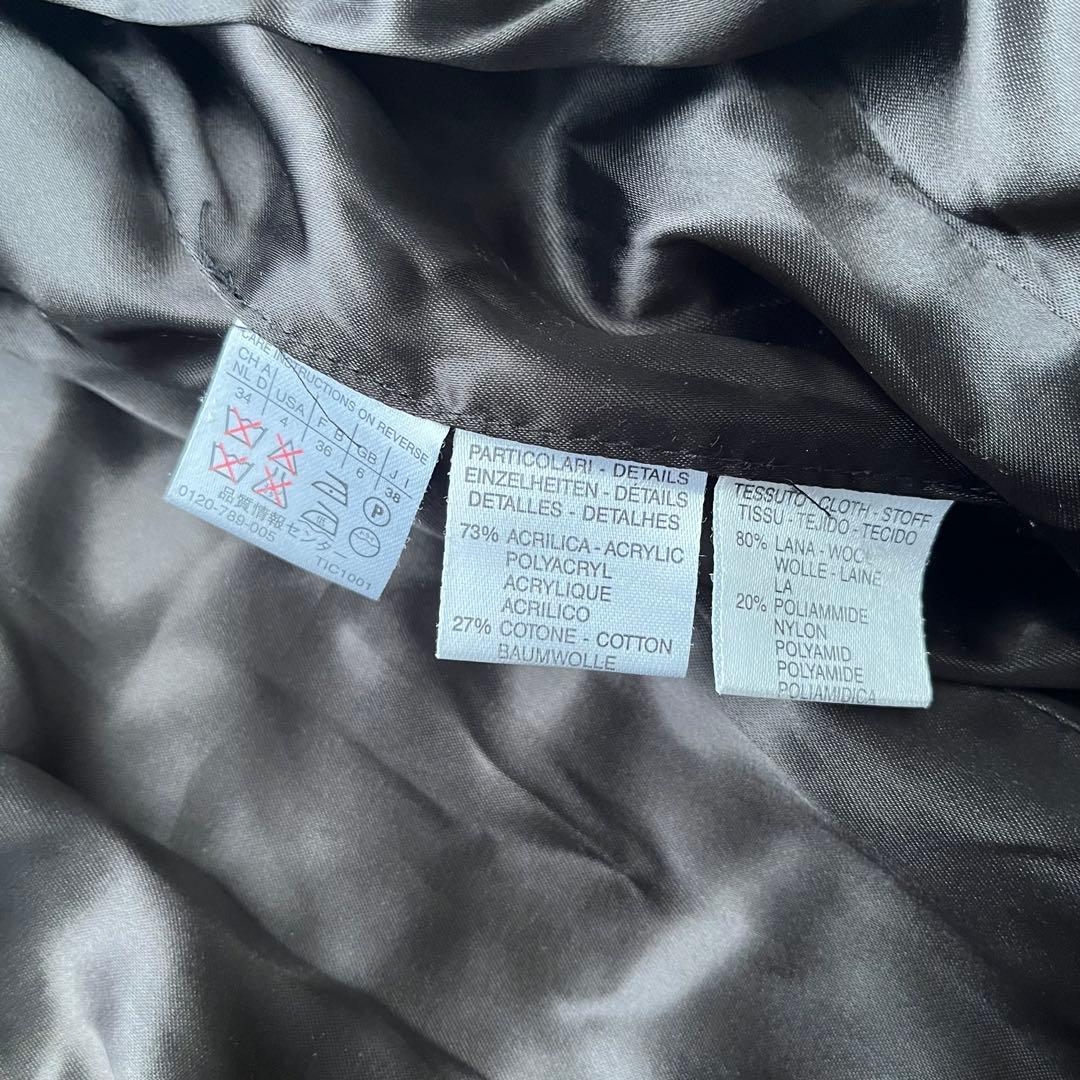 CARE INSTRUCTIONS ON REVERSE
CH A
NL D USA F B GB J I
34 4 36 6 38
P
品質情報センター
0120-789-005 TIC1001
PARTICOLARI - DETAILS
EINZELHEITEN - DÉTAILS
DETALLES - DETALHES
73% ACRILICA - ACRYLIC
POLYACRYL
ACRYLIQUE
ACRILICO
27% COTONE - COTTON
BAUMWOLLE
TESSUTO - CLOTH - STOFF
TISSU - TEJIDO - TECIDO
80% LANA - WOOL
WOLLE - LAINE
LA
20% POLIAMMIDE
NYLON
POLYAMID
POLYAMIDE
POLIAMIDICA